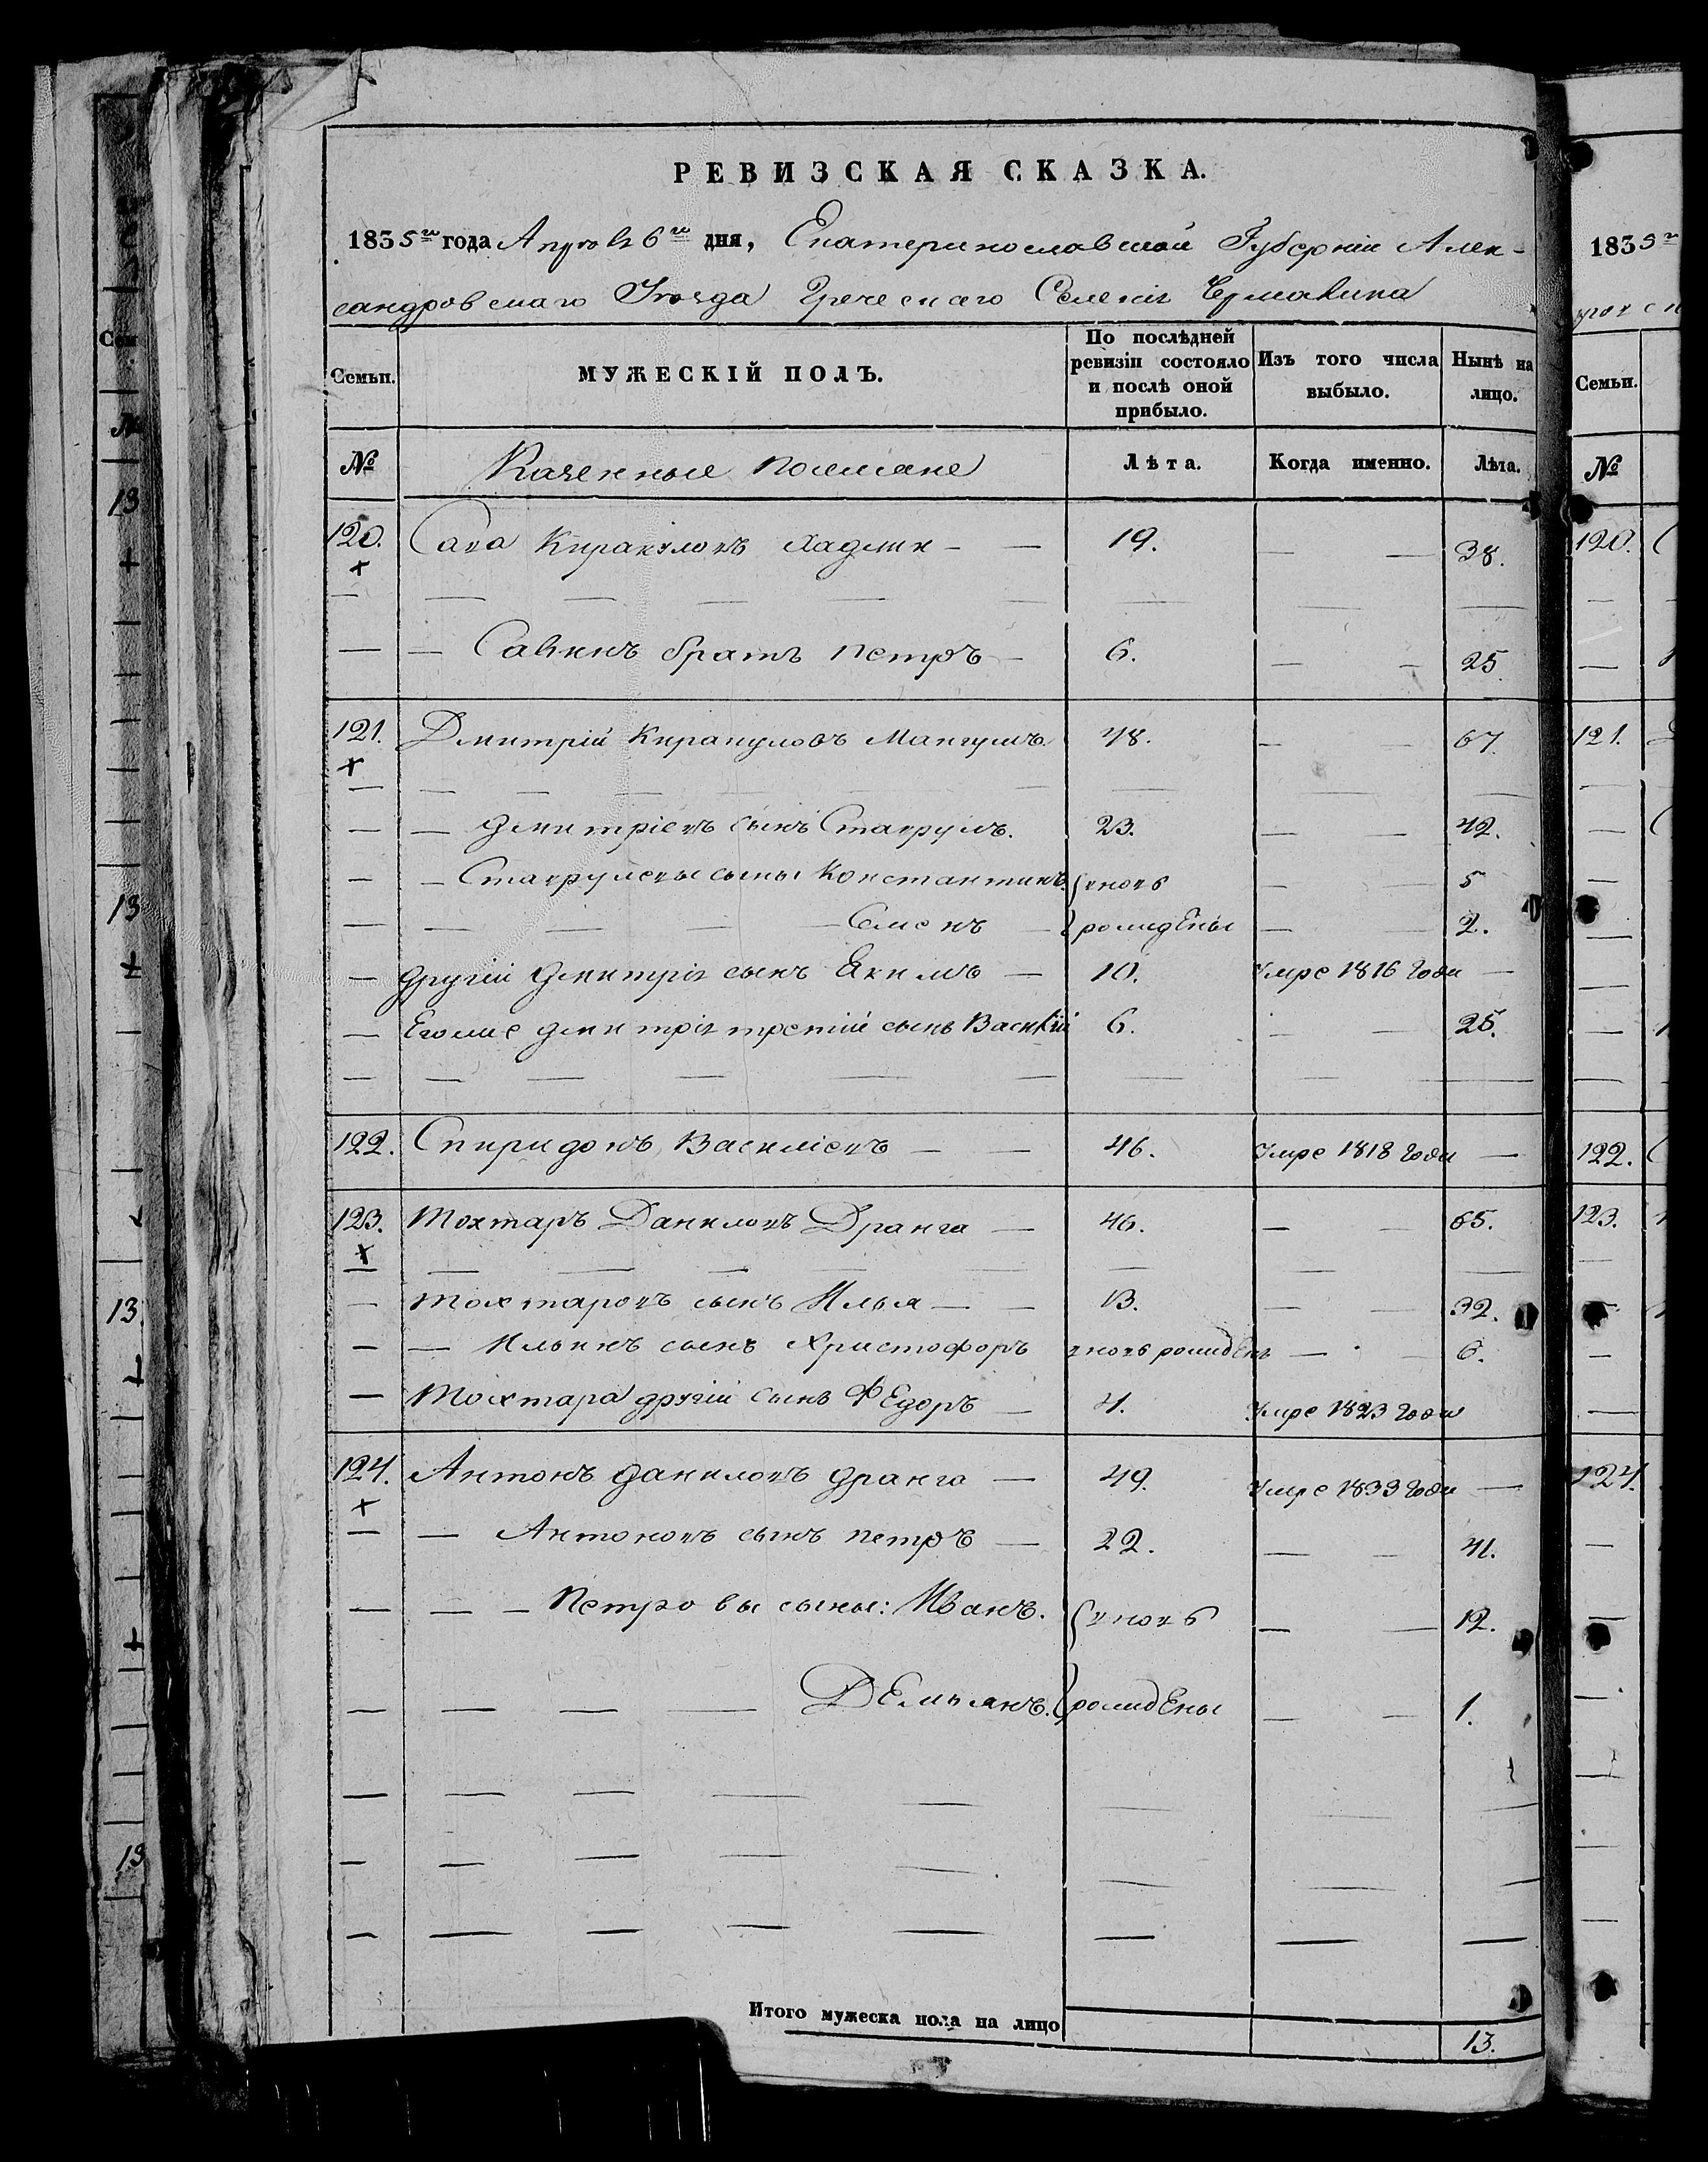 РЕВИЗСКАЯ СКАЗКА.
1835го года Апреля 6го дня, Екатеринославской Губерніи Алек-
сандровскаго Уезда Греческаго Селенія Чермалика
Семьи. МУЖЕСКІЙ ПОЛЪ. По послѣдней ревизіи состояло и послѣ оной прибыло. Изъ того числа выбыло. Нынѣ на лицо.
№ Казенные поселяне Лѣта. Когда именно. Лѣта.
120. Сава Киракуловъ Хаджи — — 19. — — 38.
— — Савинъ братъ петръ — 6. — — 25
121. Дмитрій Киракуловъ Мангушъ 48. — — 67
— — дмитріевъ сынъ Ставрулъ. 23. — — 42.
— — Ставрулевы сыны Константинъ. вновь — — 5
— — — — — Семенъ — рождены — — 2.
— другій дмитрія сынъ Екимъ — 10. Умре 1816 года —
— Егоже дмитрія третій сынъ Василій 6. — — 25.
122. Спиридонъ Василіевъ — — 46. Умре 1818 года —
123. Тохтаръ Даниловъ Дранга — 46. — — 65.
— тохтаровъ сынъ Илья — — 13. — — 32.
— — Ильинъ сынъ Христофоръ вновь рожденъ — — 6.
— Тохтара другій сынъ ФЕдоръ — 4. Умре 1823 года
124. Антонъ даниловъ дранга — 49. Умре 1833 года —
— — Антоновъ сынъ петръ — 22. — — 41.
— — — Петровы сыны: Иванъ. вновь — — 12.
— — — — — ДЕмьянъ. рождены — — 1.
Итого мужеска пола на лицо 13.
1835го
Семьи.
№
120.
121.
122.
123.
124.
Сем
№
13
13
13
13